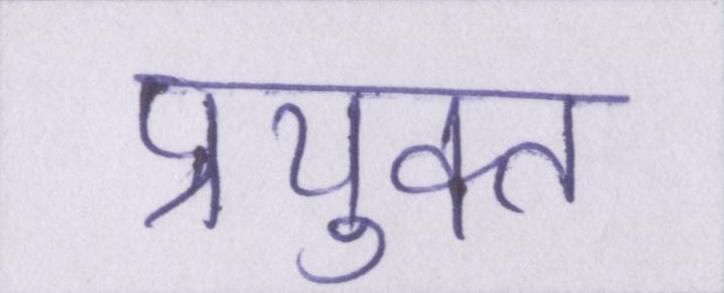 प्रयुक्त